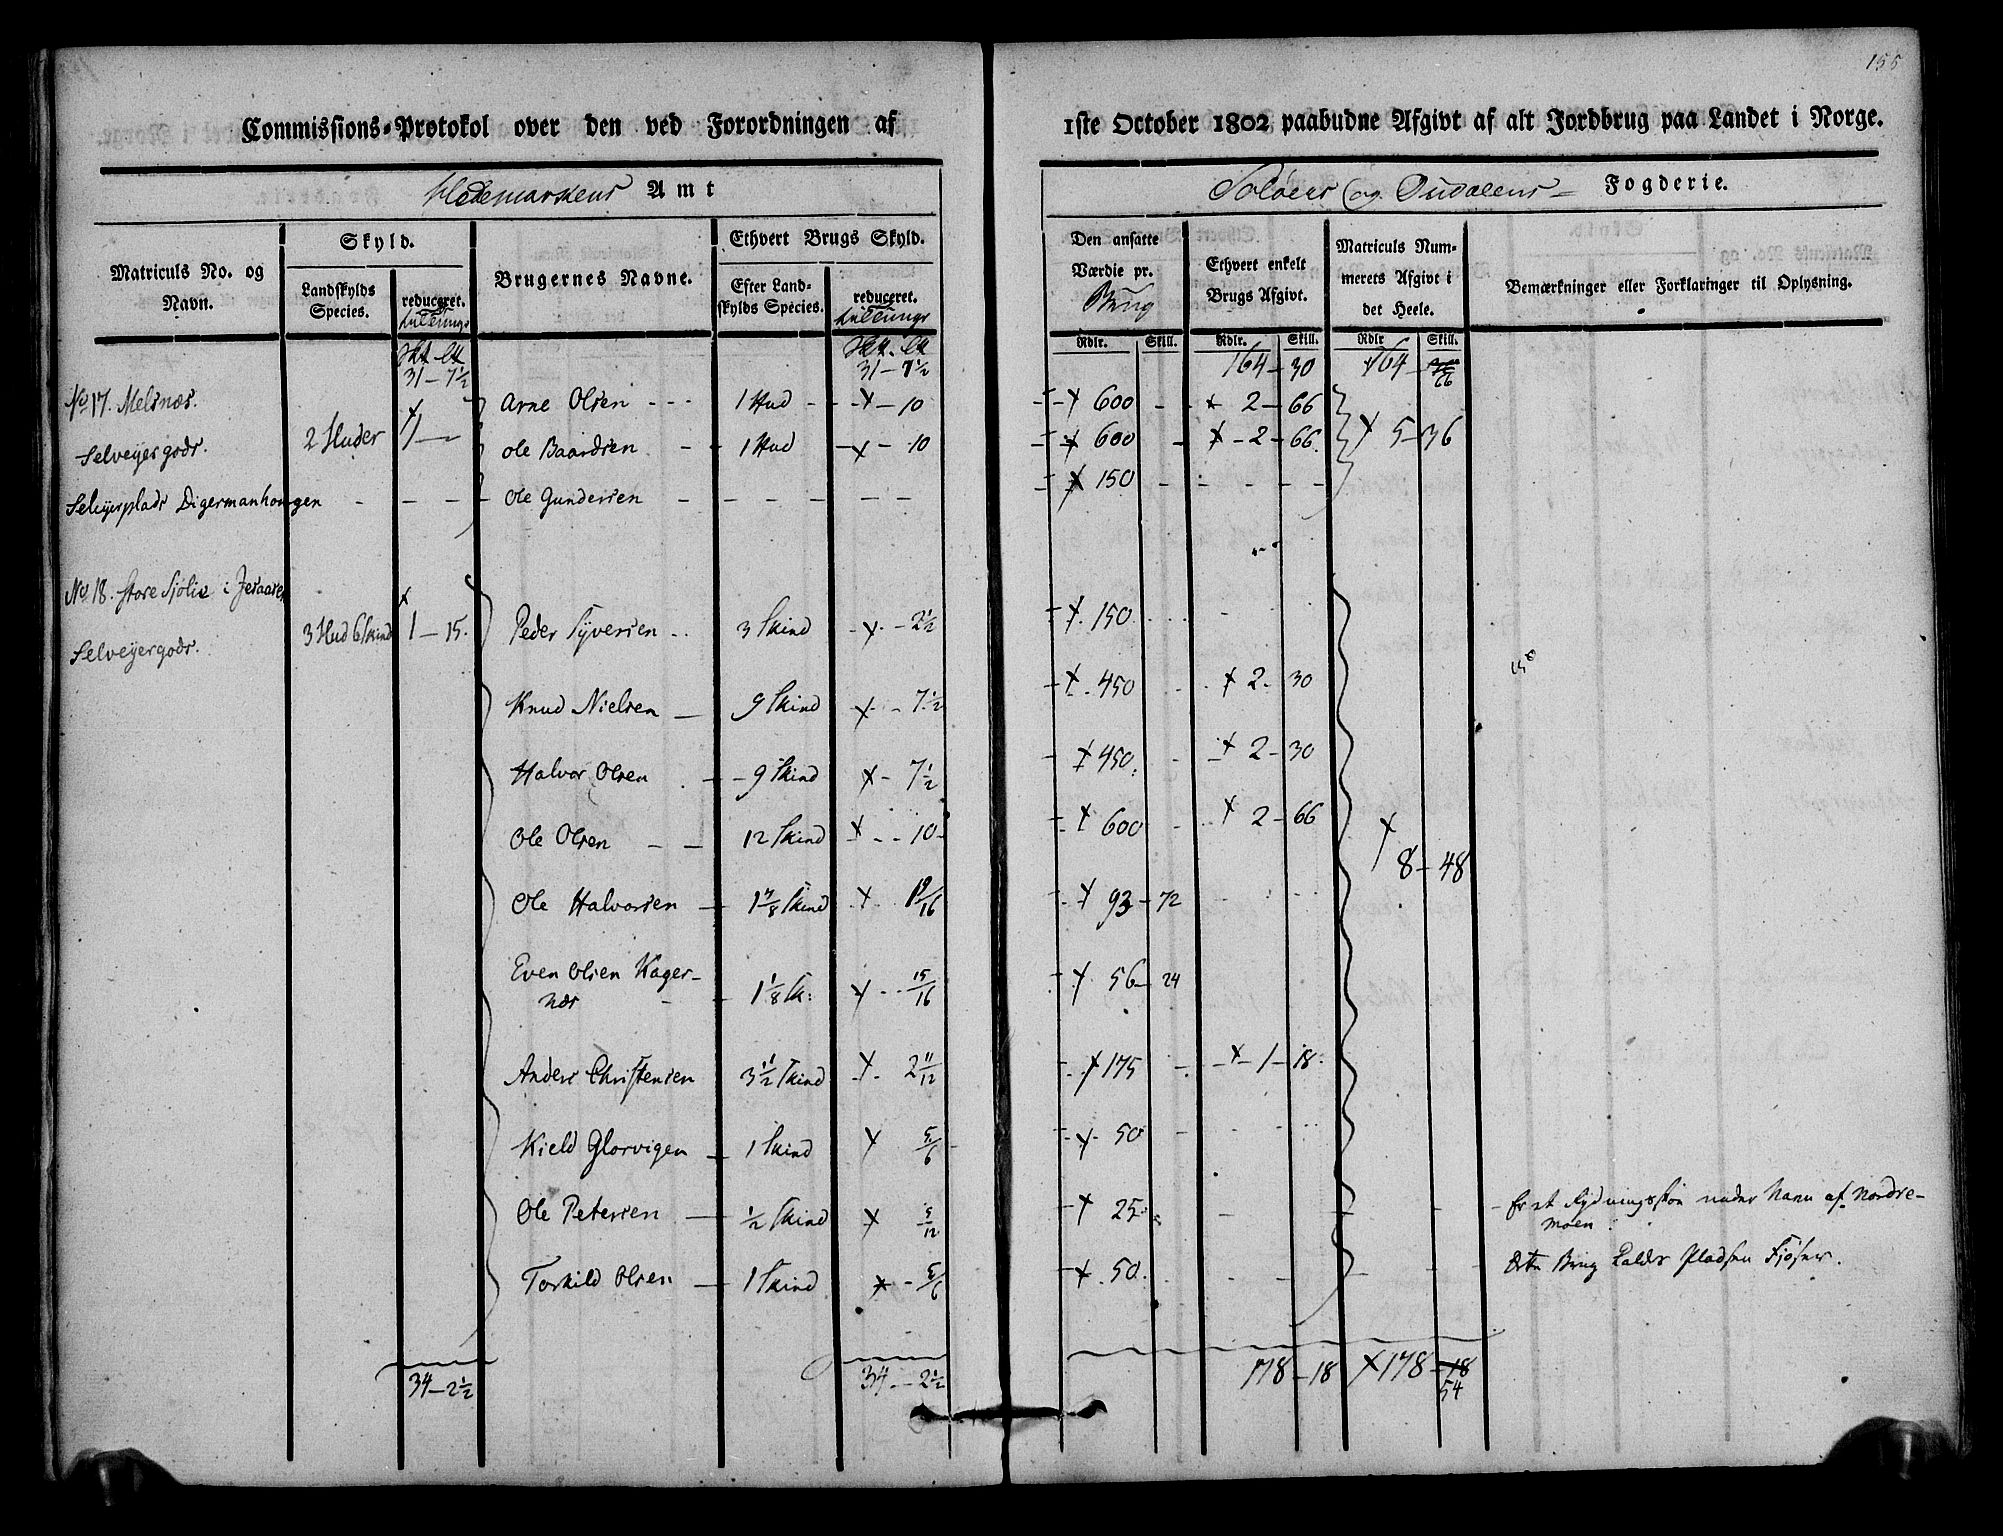 155
Commissions-Protokol over den ved Forordningen af 1ste October 1802 paabudne Afgivt af alt Jordbrug paa Landet i Norge.
Hedemarkens Amt
Soløers og Oudalens Fogderie.
Matriculs No. og Navn.
Skyld.
Landskylds Species.
reduceret.
Brugernes Navne.
Ethvert Brugs Skyld.
Efter Landskylds Species.
reduceret.
Den ansatte Værdie pr. Brug
Rdlr. Skill.
Ethvert enkelt Brugs Afgivt.
Rdlr. Skill.
Matriculs Nummerets Afgivt i det Heele.
Rdlr Skill.
Bemærkninger eller Forklaringer til Oplysning.
31 – 7½ 31 – 7½ 164 – 30 164 – 66
No 17. Melsnæs. Arne Olsen – 1 Hud – x – 10 x 600 x 2 – 66
Selveyergods. 2 Huder 1 – Ole Baardsen – 1 Hud – x – 10 x 600 x – 2 – 66 x 5 – 36
Seleyerplads Digermanhougen – – – Ole Gundersen – – – – – x 150 – – – –
No 18. Store Sjølie i
Selveyergods. 3 Hud 6 Skind 1 – 15. Peder Syversen 3 Skind x – 2½ x 150
Knud Nielsen – 9 Skind x – 7½ x 450 x 2 – 30
Halvor Olsen – 9 Skind x – 7½ x 450 x 2 – 30
Ole Olsen – – 12 Skind x – 10 x 600 x 2 – 66
x 8 – 48
Ole Halvorsen – 1 7/8 Skind x 1 9/16 x 93 – 72
Even Olsen Kager-
næs – 1 1/8 Sk: x 15/16 x 56 – 24
Anders Christensen 3½ Skind x 2 11/12 x 175 x – 1 – 18
Kield Glorvigen – 1 Skind x 5/6 x 50
Ole Petersen – ½ Skind x 5/12 x 25 Er et Rydningsstøe under Navn af Nordre-
moen
Torkild Olsen – 1 Skind x – 5/6 x 50 dette Brug kaldes Pladsen Fjøser.
34 – 2½ 34 – 2½ 178 – 18 x 178 – 18
54